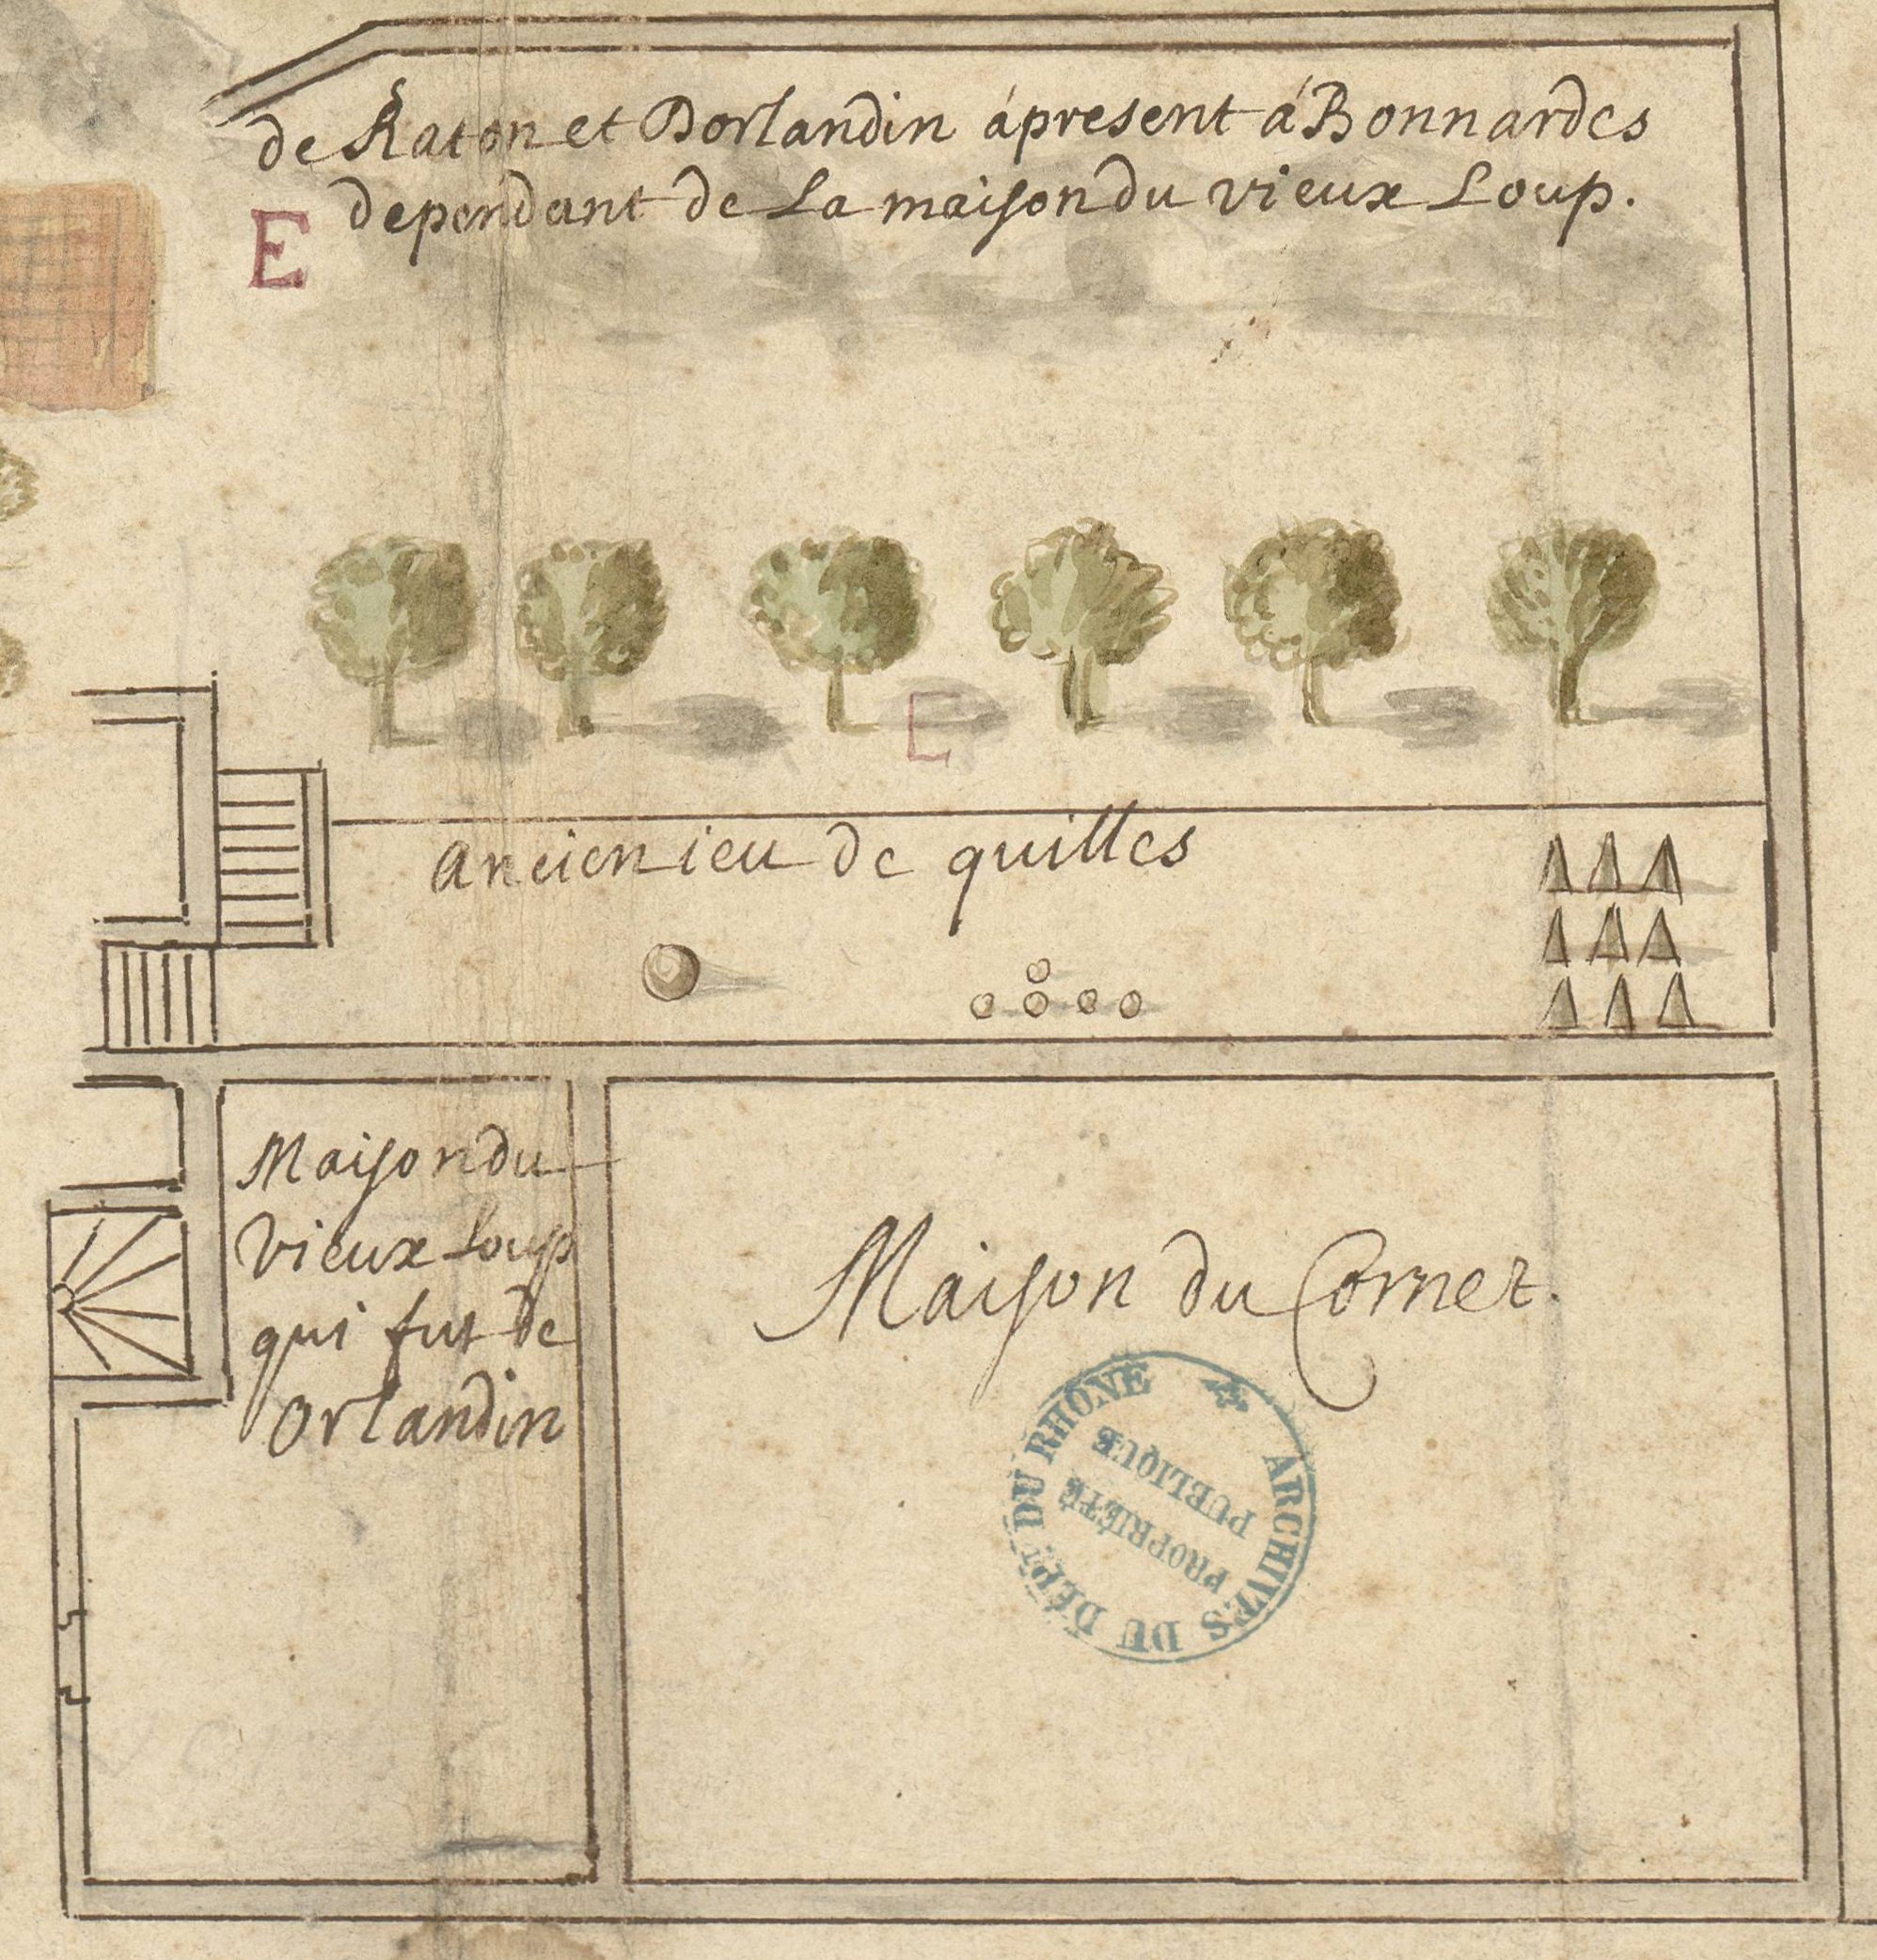 de Raton et Dorlandin ápresent á Bonnardes
dependant de La maison du vieux Loup.
E
E
ancien ieu de quilles
Maison du
vieux Loup
qui fut de
Orlandin
Maison du Cornet.
ARCHIVES DU DÉPT DU RHÔNE
PROPRIÉTÉ
PUBLIQUE